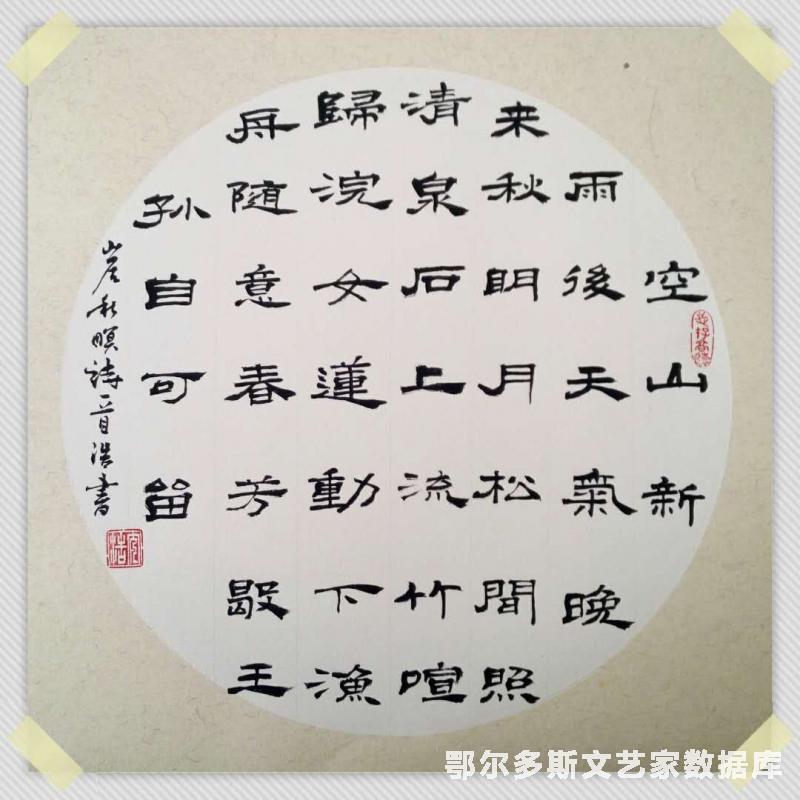 空山新
雨後天氣晚
来秋明月松間照
清泉石上流竹喧
歸浣女蓮動下漁
舟随意春芳歇王
孙自可留
崖秋暝詩一首浩書
鄂尔多斯文艺家数据库